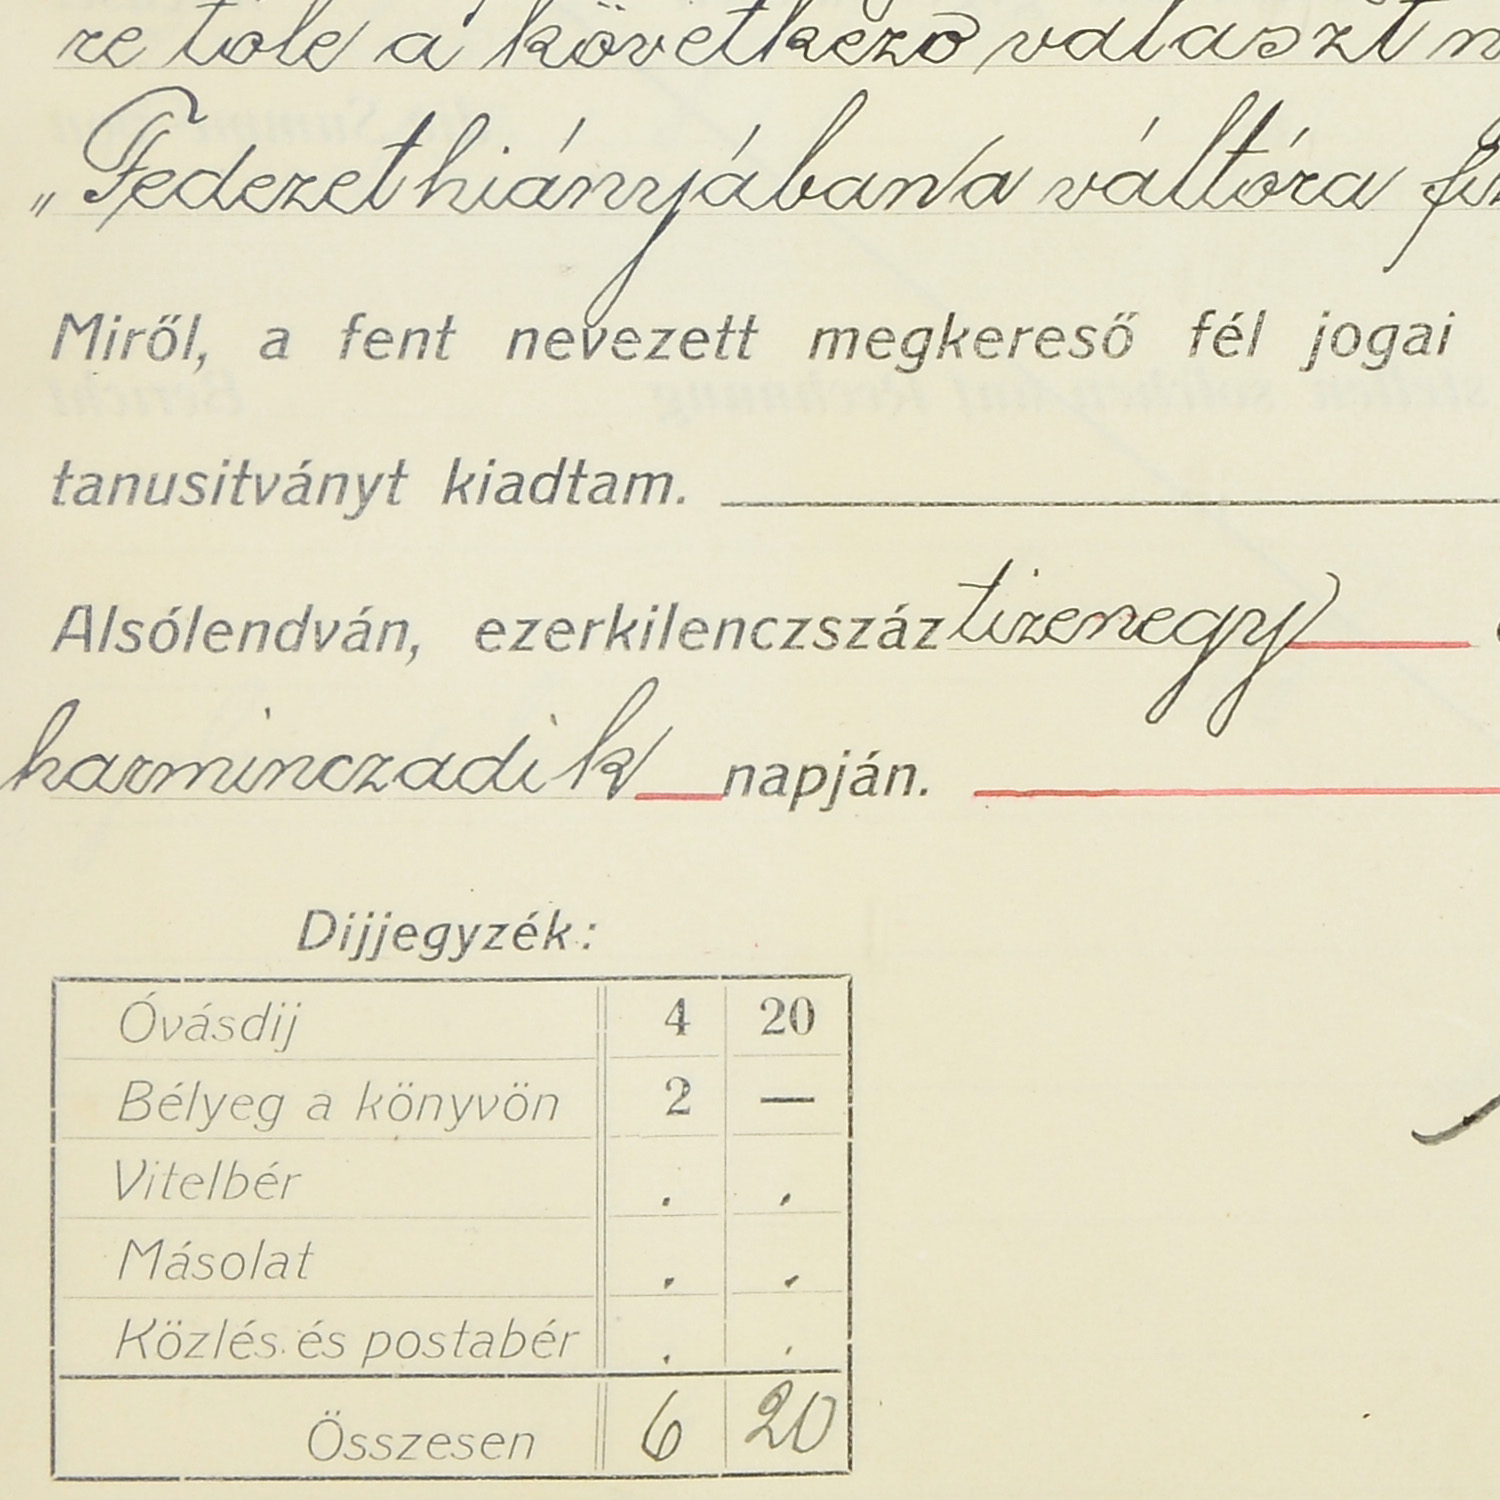 re tőle a következő választ
„Fedezet hiányában a váltóra
Miről, a fent nevezett megkereső fél jogai
tanusitványt kiadtam.
Alsólendván, ezerkilenczszáz tizenegy
harminczadik napján.
Dijjegyzék:
Óvásdij 4 20
Bélyeg a könyvön 2 —
Vitelbér . .
Másolat . .
Közlés és postabér . .
Összesen 6 20